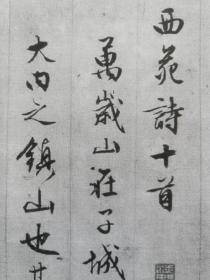 西苑詩十首
萬歲山在子城
大内之鎮山也